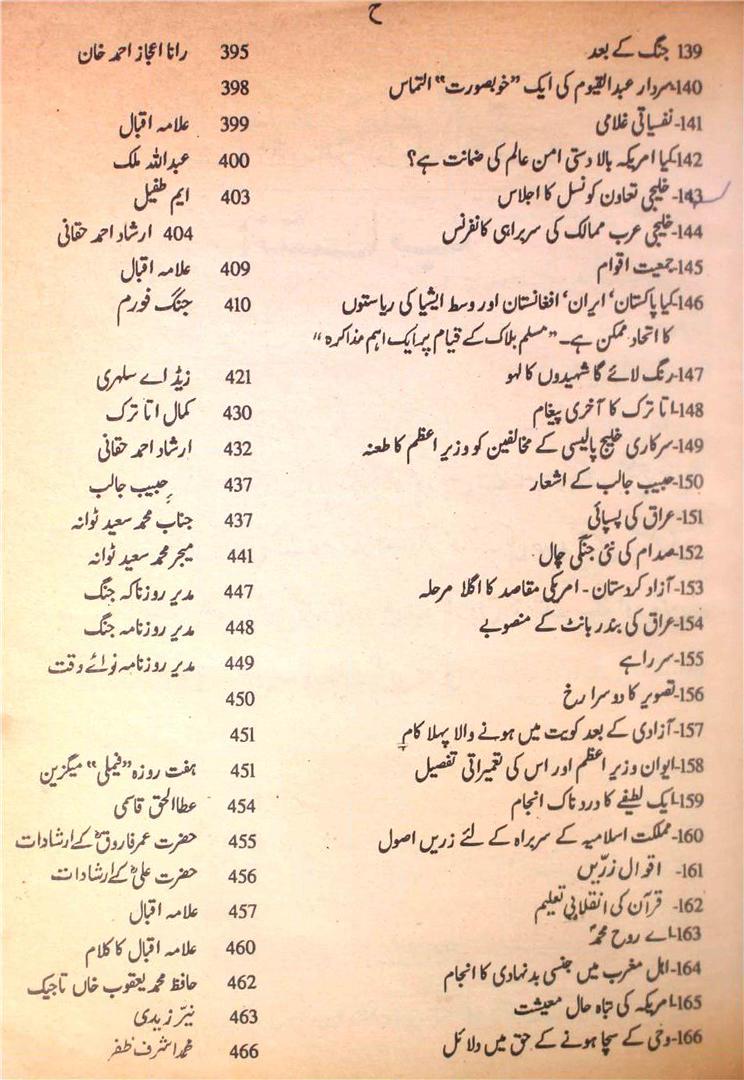 ح
139 جنگ کے بعد 395 رانا اعجاز احمد خان
140-سردار عبدالقیوم کی ایک "خوبصورت" التماس 398
141-نفسیاتی غلامی 399 علامہ اقبال
142-کیا امریکہ بالا دستی امن عالم کی ضمانت ہے؟ 400 عبداللہ ملک
143-خلیجی تعاون کونسل کا اجلاس 403 ایم طفیل
144-خلیجی عرب ممالک کی سربراہی کانفرنس 404 ارشاد احمد حقانی
145-جمعیت اقوام 409 علامہ اقبال
146-کیا پاکستان' ایران' افغانستان اور وسط ایشیا کی ریاستوں 410 جنگ فورم
کا اتحاد ممکن ہے۔ "مسلم بلاک کے قیام پر ایک اہم مذاکرہ"
147-رنگ لائے گا شہیدوں کا لہو 421 زیڈ اے سلہری
148-اتا ترک کا آخری پیغام 430 کمال اتا ترک
149-سرکاری خلیج پالیسی کے مخالفین کو وزیر اعظم کا طعنہ 432 ارشاد احمد حقانی
150-حبیب جالب کے اشعار 437 حبیب جالب
151-عراق کی پسپائی 437 جناب محمد سعید ٹوانہ
152-صدام کی نئی جنگی چال 441 میجر محمد سعید ٹوانہ
153-آزاد کردستان - امریکی مقاصد کا اگلا مرحلہ 447 مدیر روزنامہ جنگ
154-عراق کی بندر بانٹ کے منصوبے 448 مدیر روزنامہ جنگ
155-سر راہے 449 مدیر روزنامہ نوائے وقت
156-تصویر کا دوسرا رخ 450
157-آزادی کے بعد کویت میں ہونے والا پہلا کام 451
158-ایوان وزیر اعظم اور اس کی تعمیراتی تفصیل 451 ہفت روزہ "فیملی" میگزین
159-ایک لطیفے کا دردناک انجام 454 عطاالحق قاسمی
160-مملکت اسلامیہ کے سربراہ کے لئے زریں اصول 455 حضرت عمر فاروقؓ کے ارشادات
161- اقوال زرّیں 456 حضرت علیؓ کے ارشادات
162- قرآن کی انقلابی تعلیم 457 علامہ اقبال
163-اے روح محمدؐ 460 علامہ اقبال کا کلام
164-اہل مغرب میں جنسی بد نہادی کا انجام 462 حافظ محمد یعقوب خاں تاجیک
165-امریکہ کی تباہ حال معیشت 463 نیّر زیدی
166-وحی کے سچا ہونے کے حق میں دلائل 466 محمد اشرف ظفر